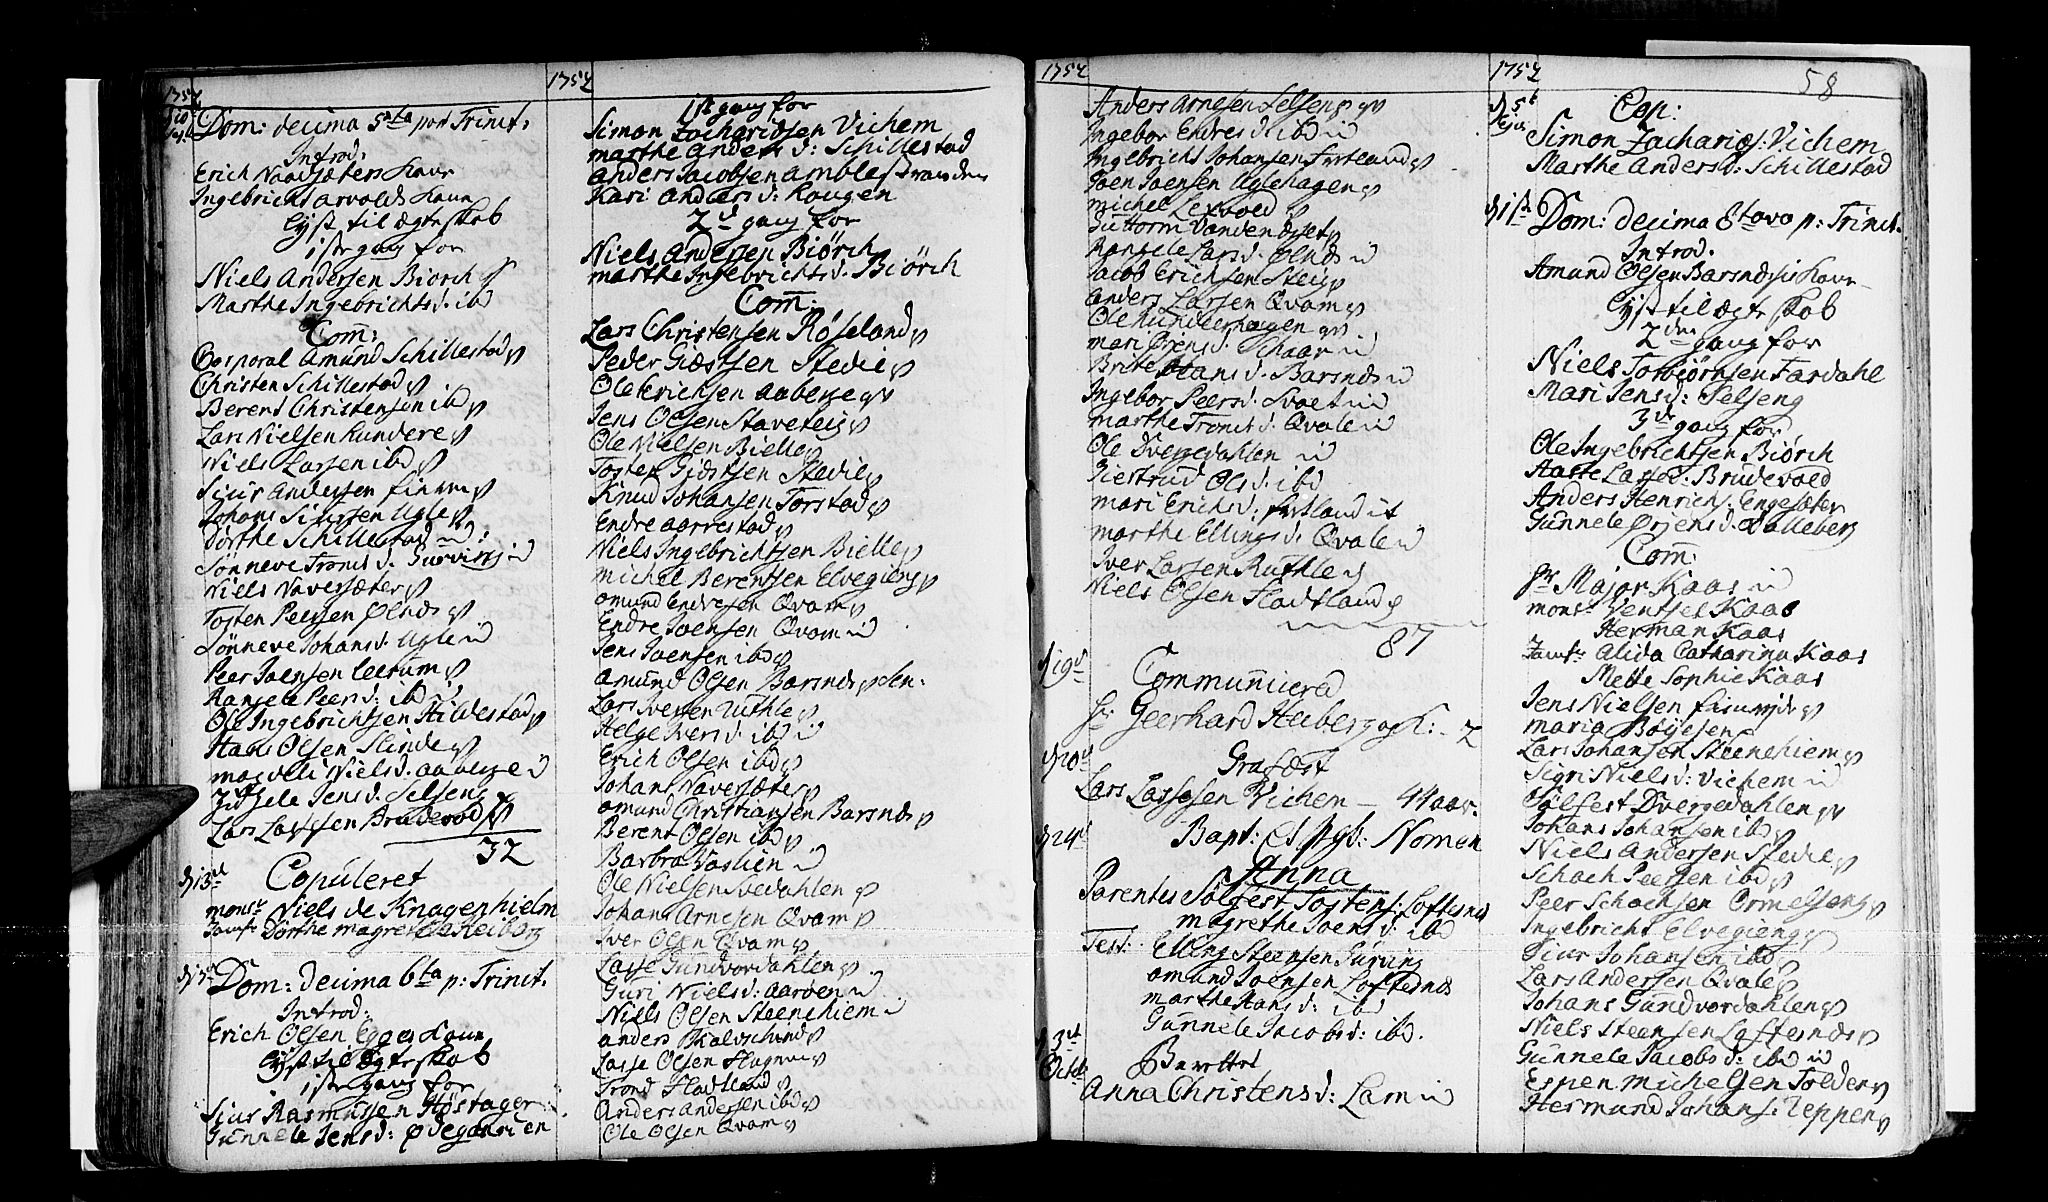 1752
d 10
Dom: decima 5ta post Trinit:
Introd:
Erich Navarsæters Kone
Ingebricht Arvolds Kone
Lyst til Ægteskab
1ste gang for
Niels Andersen Biörch
Marthe Ingebrichts d: ibd
Com:
Corporal Amund Schillestad
Christen Schillestad
Berent Christensen ibd
Lars Nielsen Rundere
Niels Larsen ibd
Siur Andersen
Johans Siursen Ugle
Dorthe Schillestad
Sønneve Tronds d:
Niels Naversæter
Tosten Peersen Ølnes
Sønneve Johans d: Ugle
Peer Joensen Leerum
Rangele Peers d: ibd
Ole Ingebrichtsen Hildestad
Hans Olsen Slinde
Magdeli Niels d: Aaberge
Zidsele Jens d: Selseng
Lars Lassesen Brudevold
32
d 13
Copuleret
Monsr Niels de Knagenhielm
Jomfr Dorthe Magrethe Heiberg
d 17
Dom: decima 6ta p: Trinit.
Introd:
Erich Olsen Eggers Kone
Lyst til Ægteskab
1ste gang for
Siur Rasmussen Höstager
Gunnele Jens d: Ødegaarden
1752
1st gang for
Simon Zachariæsen Vichem
Marthe Anders d: Schillestad
Anders Jacobsen Amblestranden
Kari Anders d: Haugen
2d gang for
Niels Andersen Biörch
Marthe Ingebrichts d: Biörch
Com:
Lars Christensen Röseland
Peder Giæstsen Stedie
Ole Erichsen Aaberge
Jens Olsen Staveteig
Ole Nielsen Bielle
Tosten Giæstsen Stedie
Knud Johansen Torstad
Endre Aarrestad
Niels Ingebrichtsen Bielle
Michel Berentsen Elvegieng
Omund Endresen Qvam
Endre Joensen Qvam
Jens Joensen ibd
Amund Olsen Barsnes
Lars Iversen Ruthle
Helge Ivers d: ibd
Erich Olsen ibd
Johan Naversæter
Omund Christiansen Barsnes
Berent Olsen ibd
Barbra
Ole Nielsen Svedahlen
Johans Arnesen Qvam
Iver Olsen Qvam
Lasse Gundvordahlen
Guri Niels d: Aaroen
Niels Olsen Steenehiem
Anders Kalvschind
Lasse Olsen Flagnes
Trond Fladtland
Anders Andersen ibd
Ole Olsen Qvam
1752
Anders Arnesen Selseng
Ingebor Endres d: ibd
Ingebricht Johansen Furtland
Joen Joensen Uglehagen
Michel Lexvold
Guttorm Vandendset
Rangele Lars d: Ølnes
Jacob Erichsen Steig
Anders Larsen Qvam
Ole Runderhougen
Mari Ørjens d: Schaar
Brite Hans d: Barsnes
Ingebor Peers d: Loaet
Marthe Tronds d: Qvale
Ole Dvergedahlen
Giertrud Ols d: ibd
Mari Erichs d: Furtland
Marthe Ellings d: Qvale
Iver Larsen Ruthle
Niels Olsen Fladtland
87
d 19
Communiiered
Hr Geerhard Heiberg og K: - 2
d 20
Grafæst
Lars Lassesen Vichem - 44 aar.
d 24
Bapt: Nomen
Anna
Parentes Sølfest Tostens: Loftesnes
Magrethe Joens d: ibd
Test: Elling Steensen Gurving
Omund Joensen Loftesnes
Marthe Hans d: ibd
Gunnele Jacobs d: ibd.
3
Octob
Berettet
Anna Christens d: Lam
1752
58
d 5
Cop:
Simon Zachariæs: Vichem
Marthe Anders d: Schillestad
d 1st
Dom: decima 8tava p: Trinit.
Introd.
Amund Olsen Barsnes Kone
Lyst til Ægteskab
2den gang for
Niels Torbiörnsen Fardahl
Mari Jens d: Selseng
3de gang for
Ole Ingebrichtsen Biörch
Aaste Lasses d: Brudevold
Anders Henrichs: Engesæter
Gunnele Ørjens d: Dalleberg
Com:
Hr Major Kaas
Monsr Ventzel Kaas
Herman Kaas
Jomfr Alida Catharina Kaas
Mette Sophie Kaas
Jens Nielsen
Maria Böyesen
Lars Johansen Steenehiem
Sigri Niels d: Vichem
Sølfest Dvergedahlen
Johans Johansen ibd
Niels Andersen Stedie
Schach Peersen ibd
Peer Schachsen Ormelseng
Ingebricht Elvegieng
Siur Johansen ibd
Lars Andersen Qvale
Johans Gundvordahlen
Niels Steensen Loftesnes
Gunnele Jacobs d: ibd
Espen Michelsen Folden
Hermund Johans: Teppen